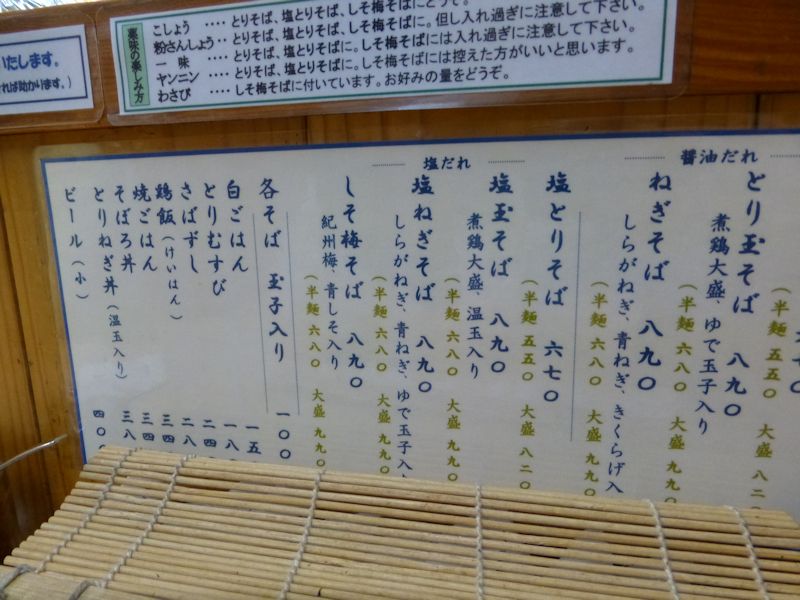 いたします。
れば助かります。)
薬味の楽しみ方
こしょう ････とりそば、塩とりそば、しそ梅そばにどうぞ。
粉さんしょう‥とりそば、塩とりそばに。但し入れ過ぎに注意して下さい。
一 味 ････とりそば、塩とりそばに。しそ梅そばには入れ過ぎに注意して下さい。
ヤンニン ････とりそば、塩とりそばに。しそ梅そばには控えた方がいいと思います。
わさび ････しそ梅そばに付いています。お好みの量をどうぞ。
醤油だれ
(半麺 五五〇 大盛 八二〇
とり玉そば 八九〇
煮鶏大盛、ゆで玉子入り
(半麺 六八〇 大盛 九九〇
ねぎそば 八九〇
しらがねぎ、青ねぎ、きくらげ入
(半麺 六八〇 大盛 九九〇
塩だれ
塩とりそば 六七〇
(半麺 五五〇 大盛 八二〇
塩玉そば 八九〇
煮鶏大盛、温玉入り
(半麺 六八〇 大盛 九九〇
塩ねぎそば 八九〇
しらがねぎ、青ねぎ、ゆで玉子入
(半麺 六八〇 大盛 九九〇
しそ梅そば 八九〇
紀州梅、青しそ入り
(半麺 六八〇 大盛 九九〇
各そば 玉子入り 一〇〇
白ごはん 一五
とりむすび 一八
さばずし 二四
鶏飯(けいはん) 二八
焼ごはん 三四
そぼろ丼 三四
とりねぎ丼(温玉入り) 三八
ビール(小) 四〇